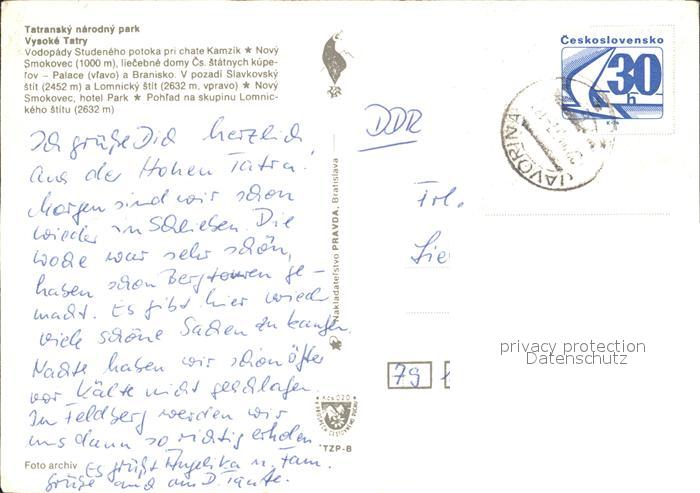 Tatranský národný park
Vysoké Tatry
Vodopády Studeného potoka pri chate Kamzík ★ Nový
Smokovec (1000 m), liečebné domy Čs. štátnych kúpe-
ľov – Palace (vľavo) a Branisko. V pozadí Slavkovský
štít (2452 m) a Lomnický štít (2632 m, vpravo) ★ Nový
Smokovec, hotel Park ★ Pohľad na skupinu Lomnic-
kého štítu (2632 m)
Ich grüße Dich herzlich
aus der Hohen Tatra.
Morgen sind wir schon
wieder in Schlieben. Die
Woche war sehr schön,
haben schon Bergtouren ge-
macht. Es gibt hier wieder
viele schöne Sachen zu kaufen.
Nachts haben wir schon öfter
vor Kälte nicht geschlafen.
In Feldberg werden wir
uns dann so richtig erholen.
Es grüßt Angelika u. Fam.
Grüße auch an D. Tante.
Foto archív
Nakladateľstvo PRAVDA, Bratislava
TZP-B
Československo
30
h
JAVORINA
DDR
Frl.
79
privacy protection
Datenschutz